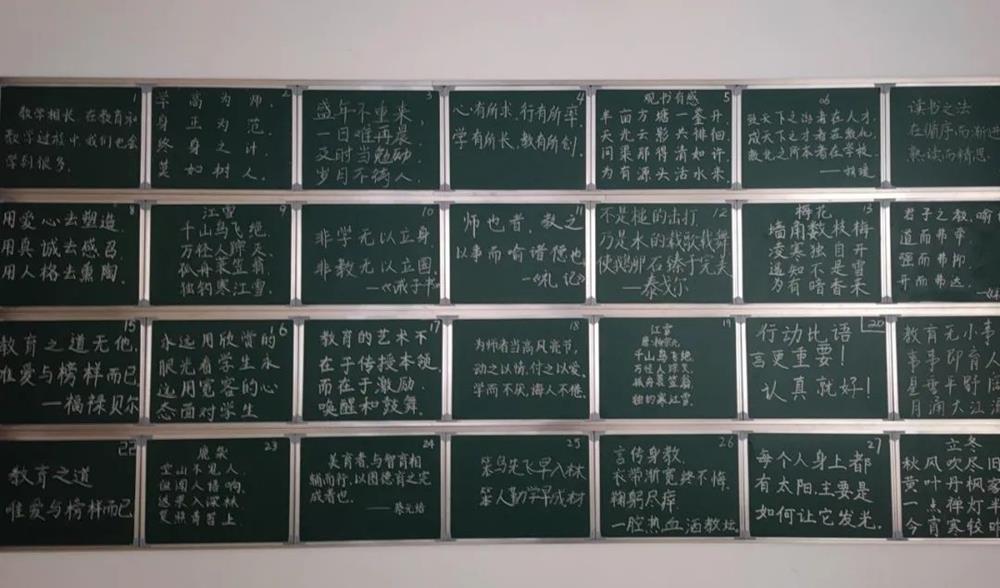 1
教学相长，在教育和
教学过放中，我们也会
学到很多。
2
学高为师，
身正为范。
终身之计，
莫如树人。
3
盛年不重来，
一日难再晨。
及时当勉励，
岁月不待人。
4
心有所求，行有所率，
学有所长，教有所创。
5
观书有感
半亩方塘一鉴开
天光云影共徘徊
问渠那得清如许，
为有源头活水来。
06
致天下之治者在人才，
成天下之才者在教化，
教化之所本者在学校。
——胡瑗
读书之法
在循序而渐进
熟读而精思
8
用爱心去塑造，
用真诚去感召，
用人格去熏陶。
9
江雪
千山鸟飞绝
万径人踪灭。
孤舟蓑笠翁
独钓寒江雪。
10
非学无以立身
非教无以立国。
——《诫子书》
11
师也者，教之
以事而喻诸德也
——《礼记》
12
不是槌的击打
乃是水的载歌载舞
使鹅卵石臻于完美
——泰戈尔
13
梅花
墙角数枝梅
凌寒独自开
遥知不是雪
为有暗香来
君子之教，喻
道而弗牵
强而弗抑
开而弗达
15
教育之道无他，
唯爱与榜样而已
——福禄贝尔
16
永远用欣赏的
眼光看学生永
远用宽容的心
态面对学生
17
教育的艺术不
在于传授本领，
而在于激励、
唤醒和鼓舞。
18
为师者当高风亮节，
动之以情，付之以爱，
学而不厌，诲人不倦。
19
江雪
唐·柳宗元
千山鸟飞绝
万径人踪灭。
孤舟蓑笠翁
独钓寒江雪。
20
行动比语
言更重要！
认真就好！
教育无小事
事事即育人
星垂平野阔
月涌大江流
22
教育之道
唯爱与榜样而已
23
鹿柴
空山不见人
但闻人语响。
返景入深林
复照青苔上。
24
美育者，与智育相
辅而行，以图德育之完
成者也。
——蔡元培
25
笨鸟先飞早入林
笨人勤学早成材
26
言传身教
衣带渐宽终不悔
鞠躬尽瘁
一腔热血洒教坛
27
每个人身上都
有太阳，主要是
如何让它发光。
立冬
秋风吹尽旧
黄叶丹枫客
一点禅灯半
今宵寒较昨